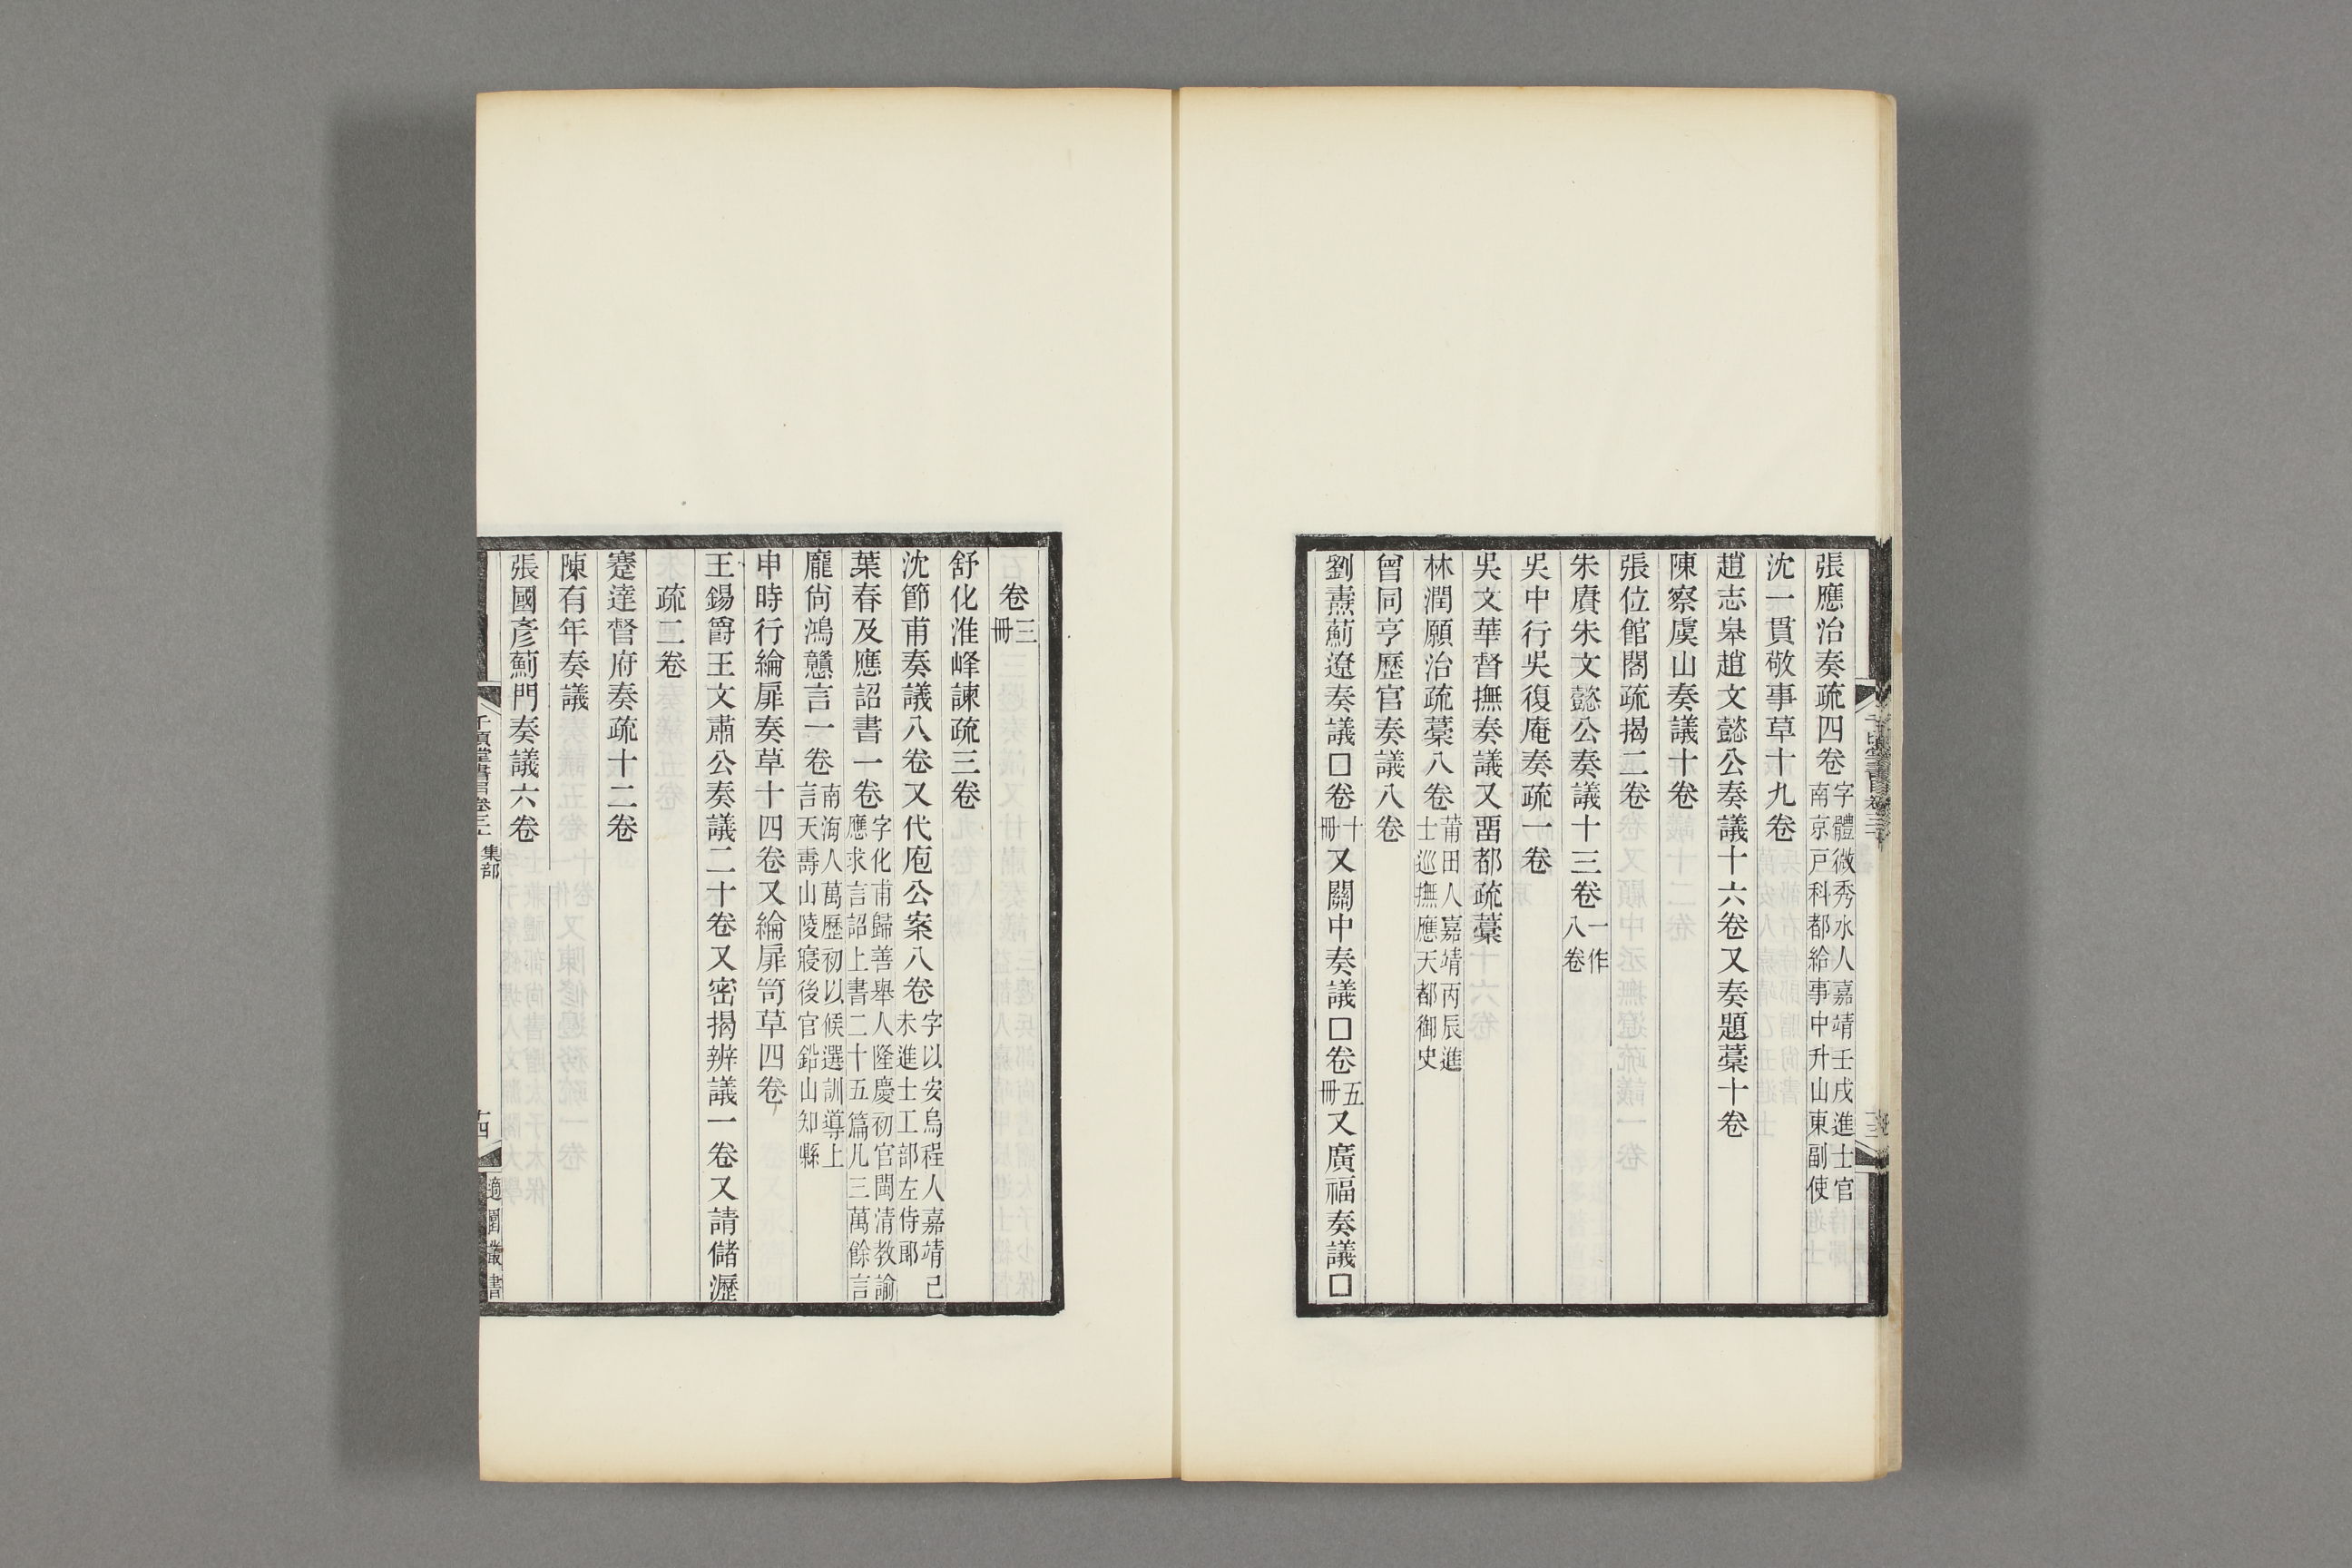 張應治奏疏四卷字體微秀水人嘉靖壬戌進士官南京戸科都給事中升山東副使
沈一貫敬事草十九卷
趙志皋趙文懿公奏議十六卷又奏題藁十卷
陳察虞山奏議十卷
張位館閣疏揭二卷
朱賡朱文懿公奏議十三卷一作八卷
吳中行吳復庵奏疏一卷
吳文華督撫奏議又畱都疏藁
林潤願治疏藁八卷莆田人嘉靖丙辰進士巡撫應天都御史
曾同亨歷官奏議八卷
劉燾薊遼奏議□卷十冊又關中奏議□卷五冊又廣福奏議□
卷三冊
舒化淮峰諫疏三卷
沈節甫奏議八卷又代庖公案八卷字以安烏程人嘉靖己未進士工部左侍郎
葉春及應詔書一卷字化甫歸善舉人隆慶初官閩清教諭應求言詔上書二十五篇凡三萬餘言
龐尙鴻戇言一卷南海人萬歷初以候選訓導上言天壽山陵寢後官鉛山知縣
申時行綸扉奏草十四卷又綸扉笥草四卷
王錫爵王文肅公奏議二十卷又密揭辨議一卷又請儲瀝
疏二卷
蹇達督府奏疏十二卷
陳有年奏議
張國彥薊門奏議六卷
千頃堂書目卷三十 集部
十四
適園叢書